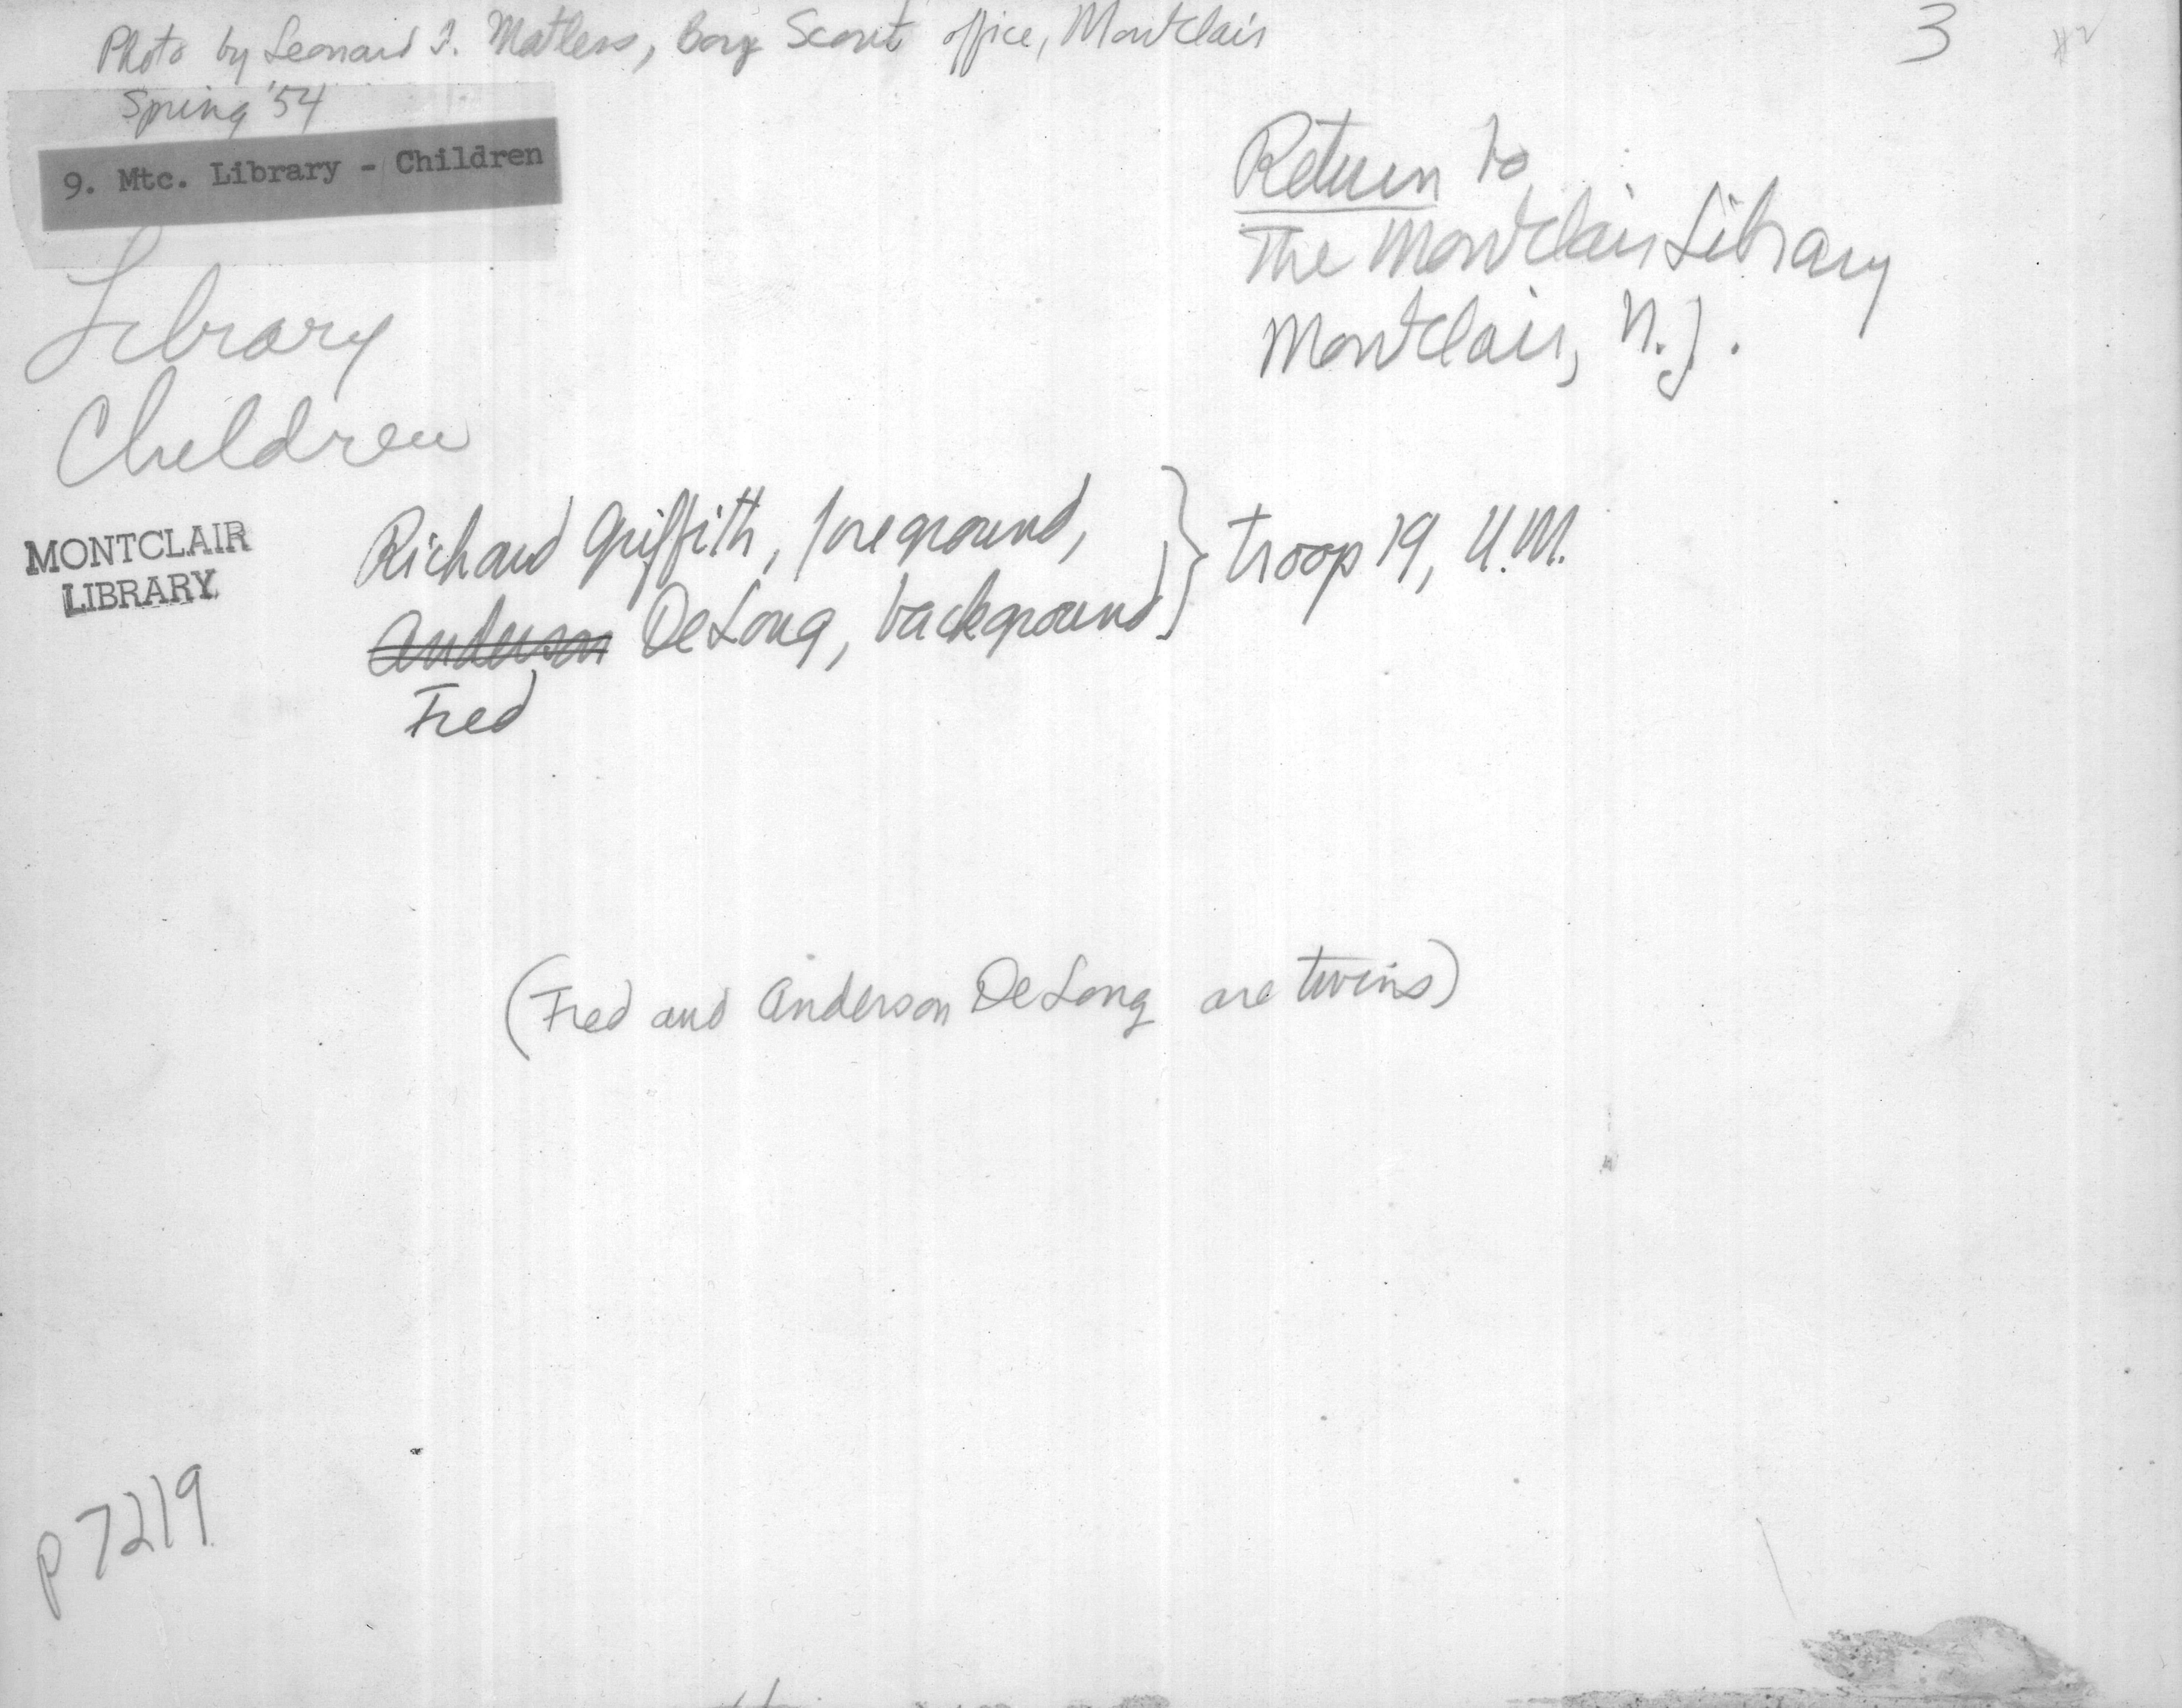 Photo by Leonard I. Matless, Boy Scout office, Montclair
Spring '54
3
#2
9. Mtc. Library - Children
Return to
The Montclair Library
Montclair, N.J.
Library
Children
MONTCLAIR
LIBRARY
Richard Griffith, foreground,
Anderson DeLong, background } troop 19, U.M.
Fred
(Fred and Anderson DeLong are twins)
P7219